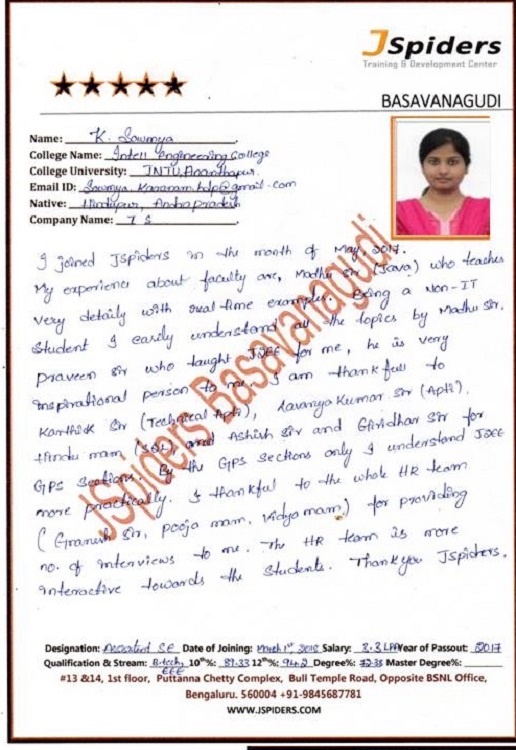 JSpiders
Training & Development Center
BASAVANAGUDI
Name: K. Sowmya
College Name: Intell Engineering College
College University: JNTU, Ananthapur.
Email ID: Sowmya.Karanam.hdp@gmail.com
Native: Hindupur, Andra pradesh
Company Name:
I joined JSpiders in the month of May, 2017.
My experience about faculty are, Madhu Sir (Java) who teaches
very detaily with real-time examples. Being a Non-IT
Student I easily understand all the topics by Madhu Sir.
Praveen Sir who taught J2EE for me, he is very
inspirational person to me. I am thankfull to
Karthick Sir (Technical Apti), Lavanya Kumar Sir (Apti),
Hindu mam, (SQL), and Ashish Sir and Giridhar Sir for
GPS Sections. By the GPS Sections only I understand J2EE
more practically. I thankful to the whole HR team
(Granesh Sir, Pooja mam, Vidya mam) for providing
no. of interviews to me. The HR team is more
interactive towards the Students. Thank you JSpiders.
JSpiders Basavanagudi
Designation: Assistant SE Date of Joining: March 1st 2018 Salary: 3.3 LPA Year of Passout: 2017
Qualification & Stream: B.tech, EEE 10th%: 89.33 12th%: 94.2 Degree%: 72.35 Master Degree%:
#13 &14, 1st floor, Puttanna Chetty Complex, Bull Temple Road, Opposite BSNL Office,
Bengaluru. 560004 +91-9845687781
WWW.JSPIDERS.COM